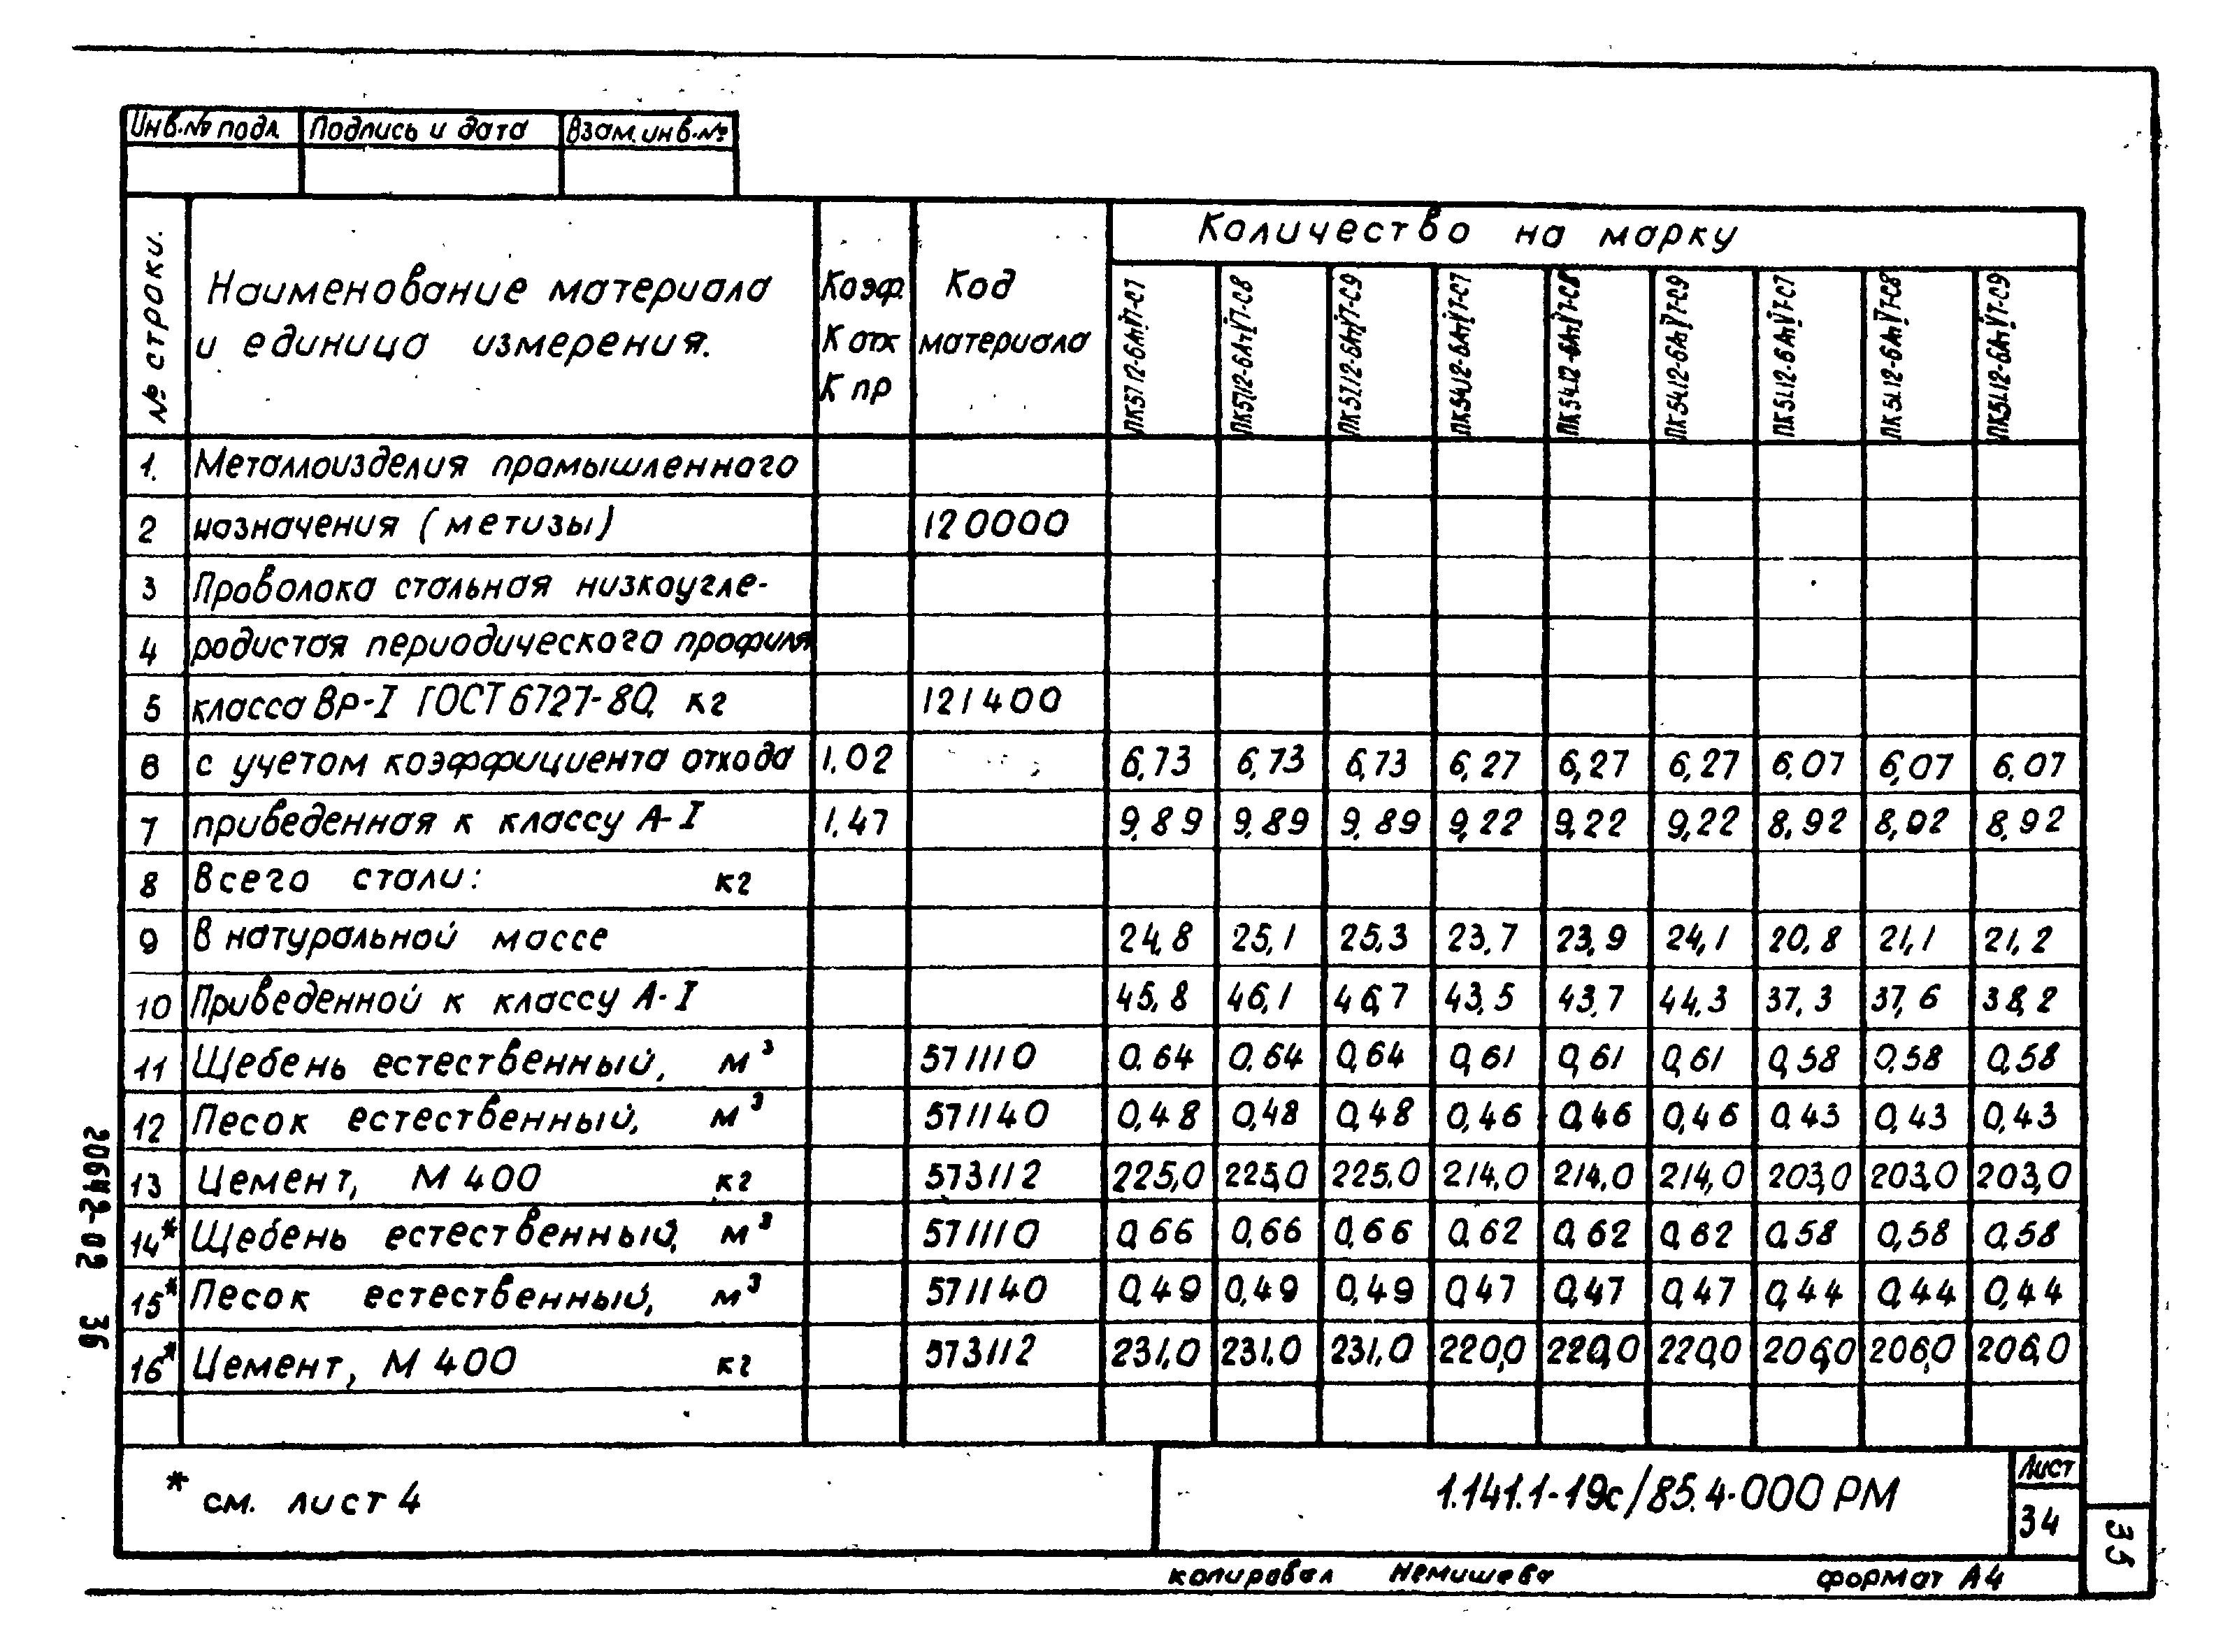 Инв.№ подл. Подпись и дата Взам.инв.№
№ строки. Наименование материала и единица измерения. Коэф. К отх К пр Код материала Количество на марку
ПК57.12-6АтV̄Т-С7 ПК57.12-6АтV̄Т-С8 ПК57.12-6АтV̄Т-С9 ПК54.12-6АтV̄Т-С7 ПК54.12-6АтV̄Т-С8 ПК54.12-6АтV̄Т-С9 ПК51.12-6АтV̄Т-С7 ПК51.12-6АтV̄Т-С8 ПК51.12-6АтV̄Т-С9
1. Металлоизделия промышленного
2 назначения (метизы) 120000
3 Проволока стальная низкоугле-
4 родистая периодического профиля
5 класса Вр-I ГОСТ 6727-80, кг 121400
6 с учетом коэффициента отхода 1.02 6,73 6,73 6,73 6,27 6,27 6,27 6,07 6,07 6,07
7 приведенная к классу А-I 1.47 9,89 9,89 9,89 9,22 9,22 9,22 8,92 8,92 8,92
8 Всего стали: кг
9 В натуральной массе 24,8 25,1 25,3 23,7 23,9 24,1 20,8 21,1 21,2
10 Приведенной к классу А-I 45,8 46,1 46,7 43,5 43,7 44,3 37,3 37,6 38,2
11 Щебень естественный, м³ 571110 0.64 0.64 0,64 0,61 0,61 0,61 0,58 0,58 0,58
12 Песок естественный, м³ 571140 0,48 0,48 0,48 0,46 0,46 0,46 0.43 0,43 0,43
13 Цемент, М 400 кг 573112 225,0 225,0 225.0 214,0 214,0 214,0 203,0 203,0 203,0
14* Щебень естественный, м³ 571110 0,66 0,66 0,66 0,62 0,62 0,62 0,58 0,58 0,58
15* Песок естественный, м³ 571140 0,49 0,49 0,49 0,47 0,47 0,47 0,44 0,44 0,44
16* Цемент, М 400 кг 573112 231,0 231,0 231,0 220,0 220,0 220,0 206,0 206,0 206,0
* см. лист 4
1.141.1-19с/85.4-000 РМ
Лист
34
копировал Немишева формат А4
20642-02 36
35